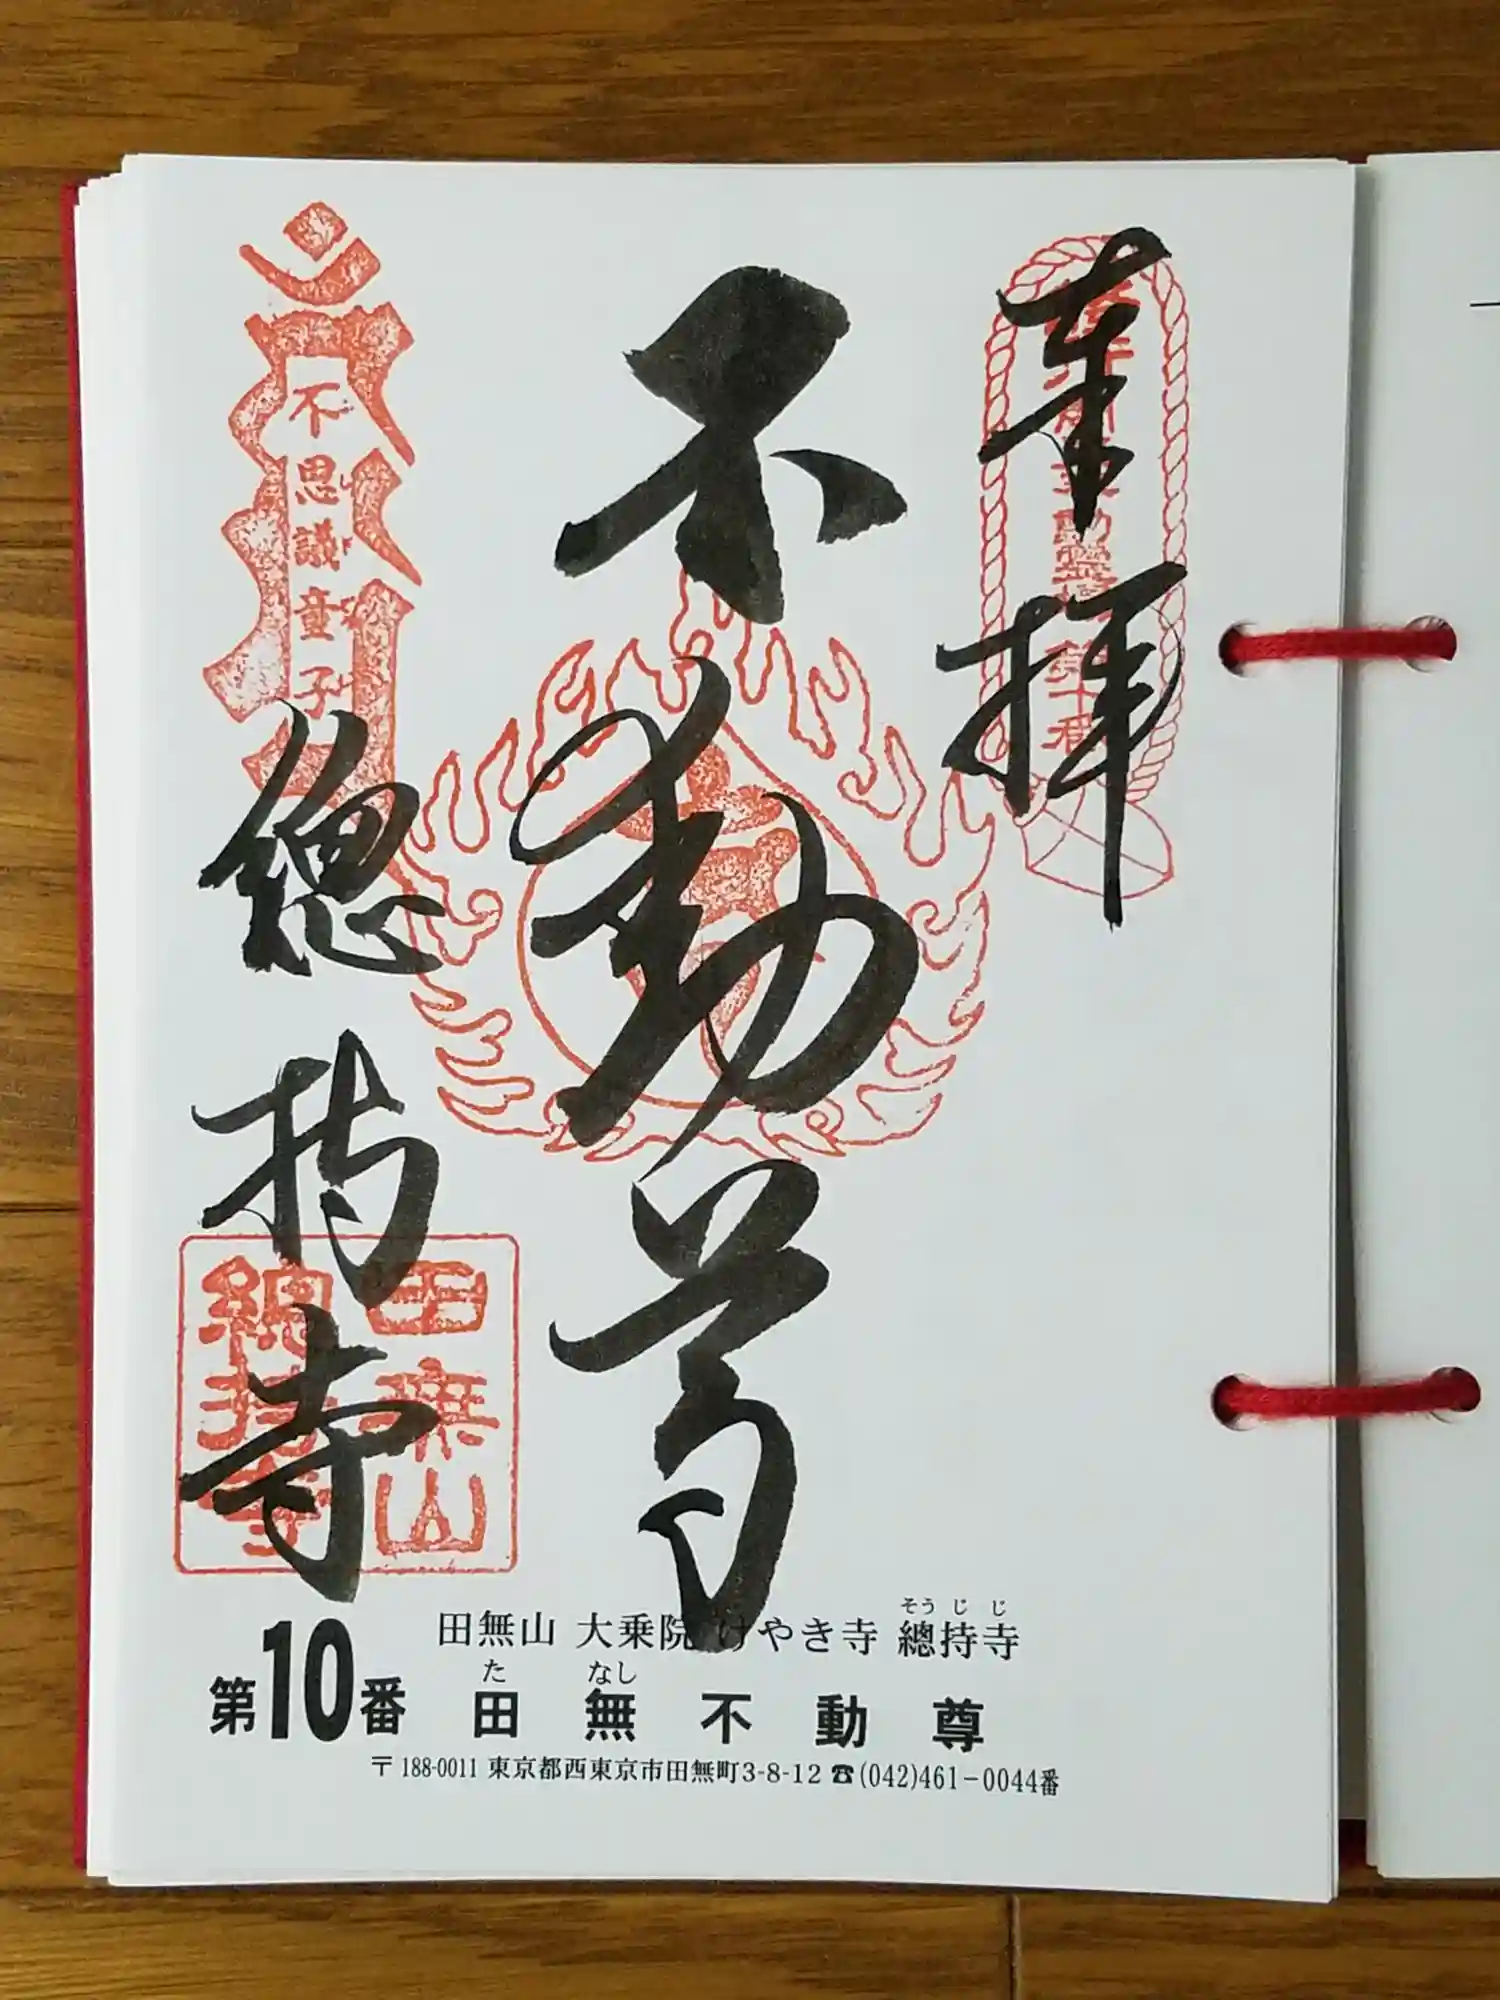 奉拝
不動尊
不思議童子
總持寺
田無山
總持寺
そうじじ
田無山 大乗院 けやき寺 總持寺
たなし
第10番 田無不動尊
〒188-0011 東京都西東京市田無町3-8-12 ☎(042)461-0044番